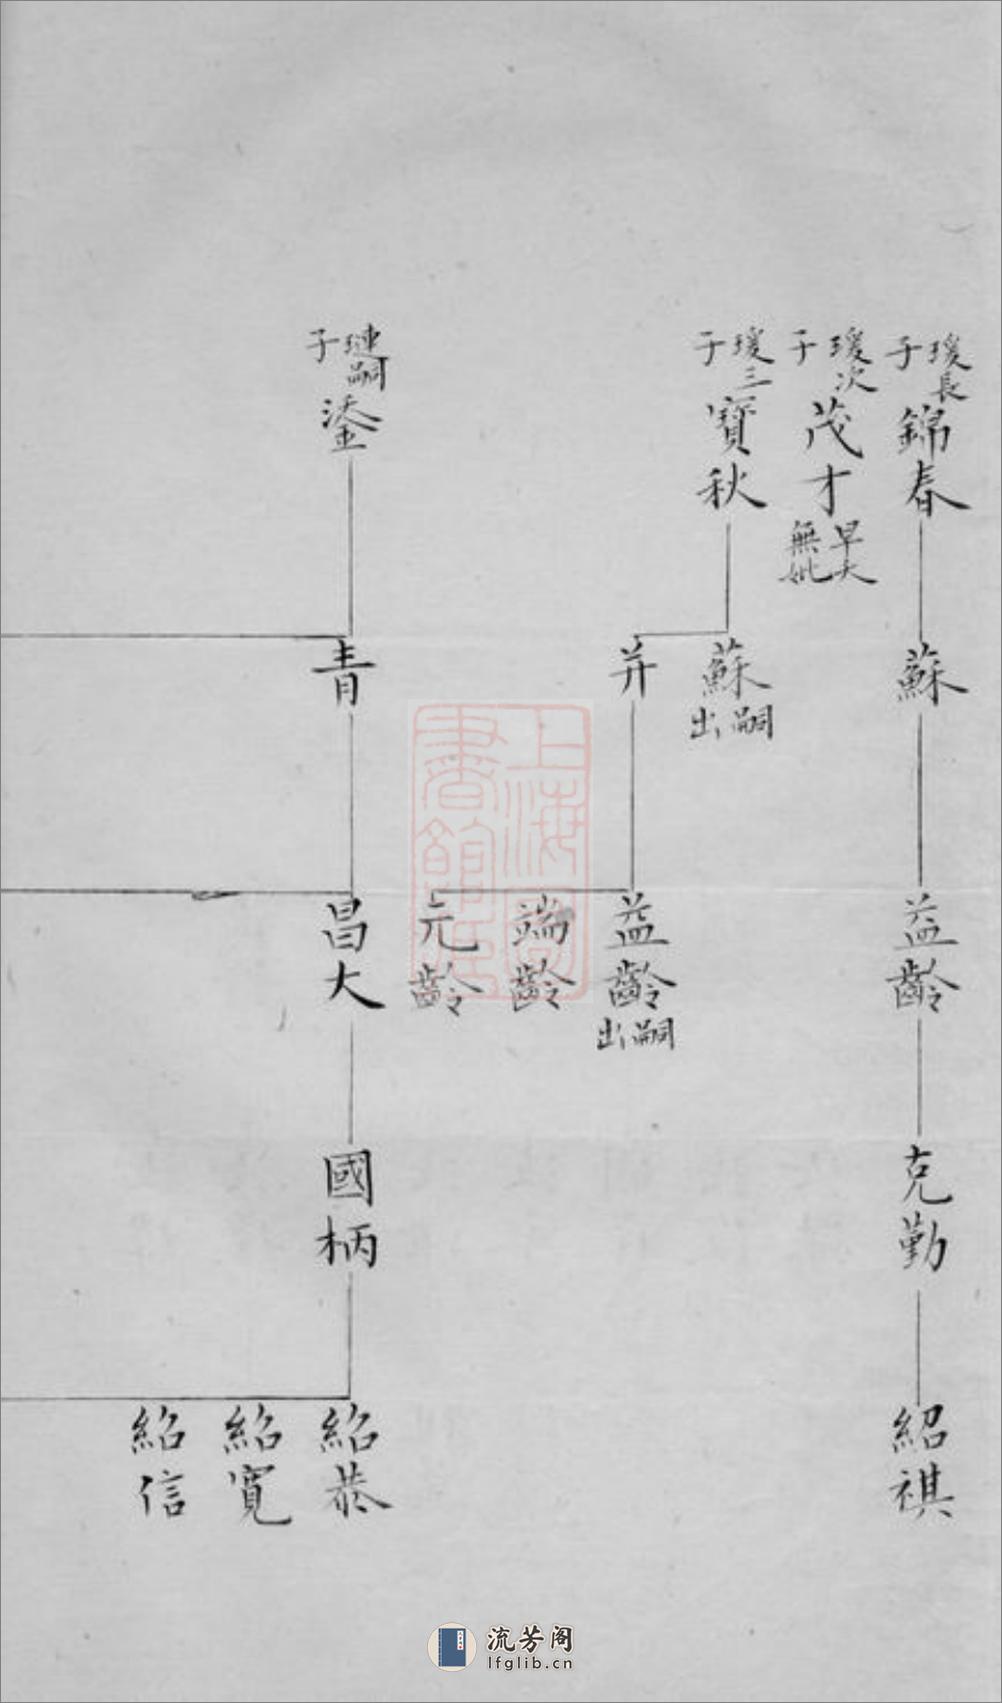 瑷長子
錦春
蘇
益齡
克勤
紹祺
瑷次子
茂才
早大
無妣
瑷三子
寶秋
蘇
嗣出
并
益齡
嗣出
端齡
元齡
璉嗣子
鋈
青
昌大
國柄
紹恭
紹寬
紹信
上海圖書館藏
流芳阁
lfglib.cn